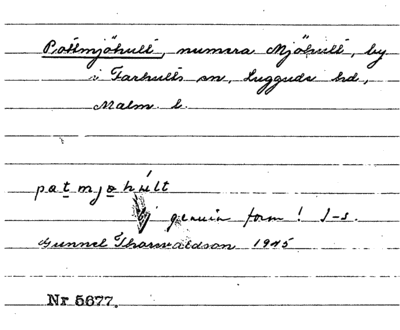 Pottmjöhult, numera Mjöhult, by
i Farhults sn, Luggude hd,
Malm. l.
patmjohult
genuin form! I-s.
Gunnel Thorwaldson 1945
Nr 5677.